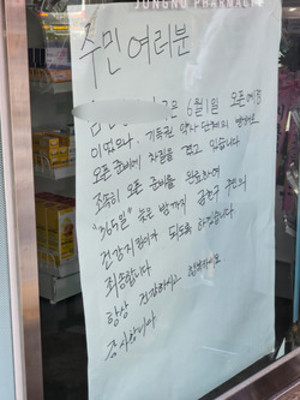 JONGNO PHARMACY
주민 여러분
은 6월 1일 오픈예정
이었으나, 기득권 약사 단체의 방해로
오픈 준비에 차질을 겪고 있습니다
조속히 오픈 준비를 완료하여
"365일" 늦은 밤까지 금천구 주민의
건강지킴이가 되도록 하겠습니다
죄송합니다
항상 건강하시고 행복하세요.
감사합니다